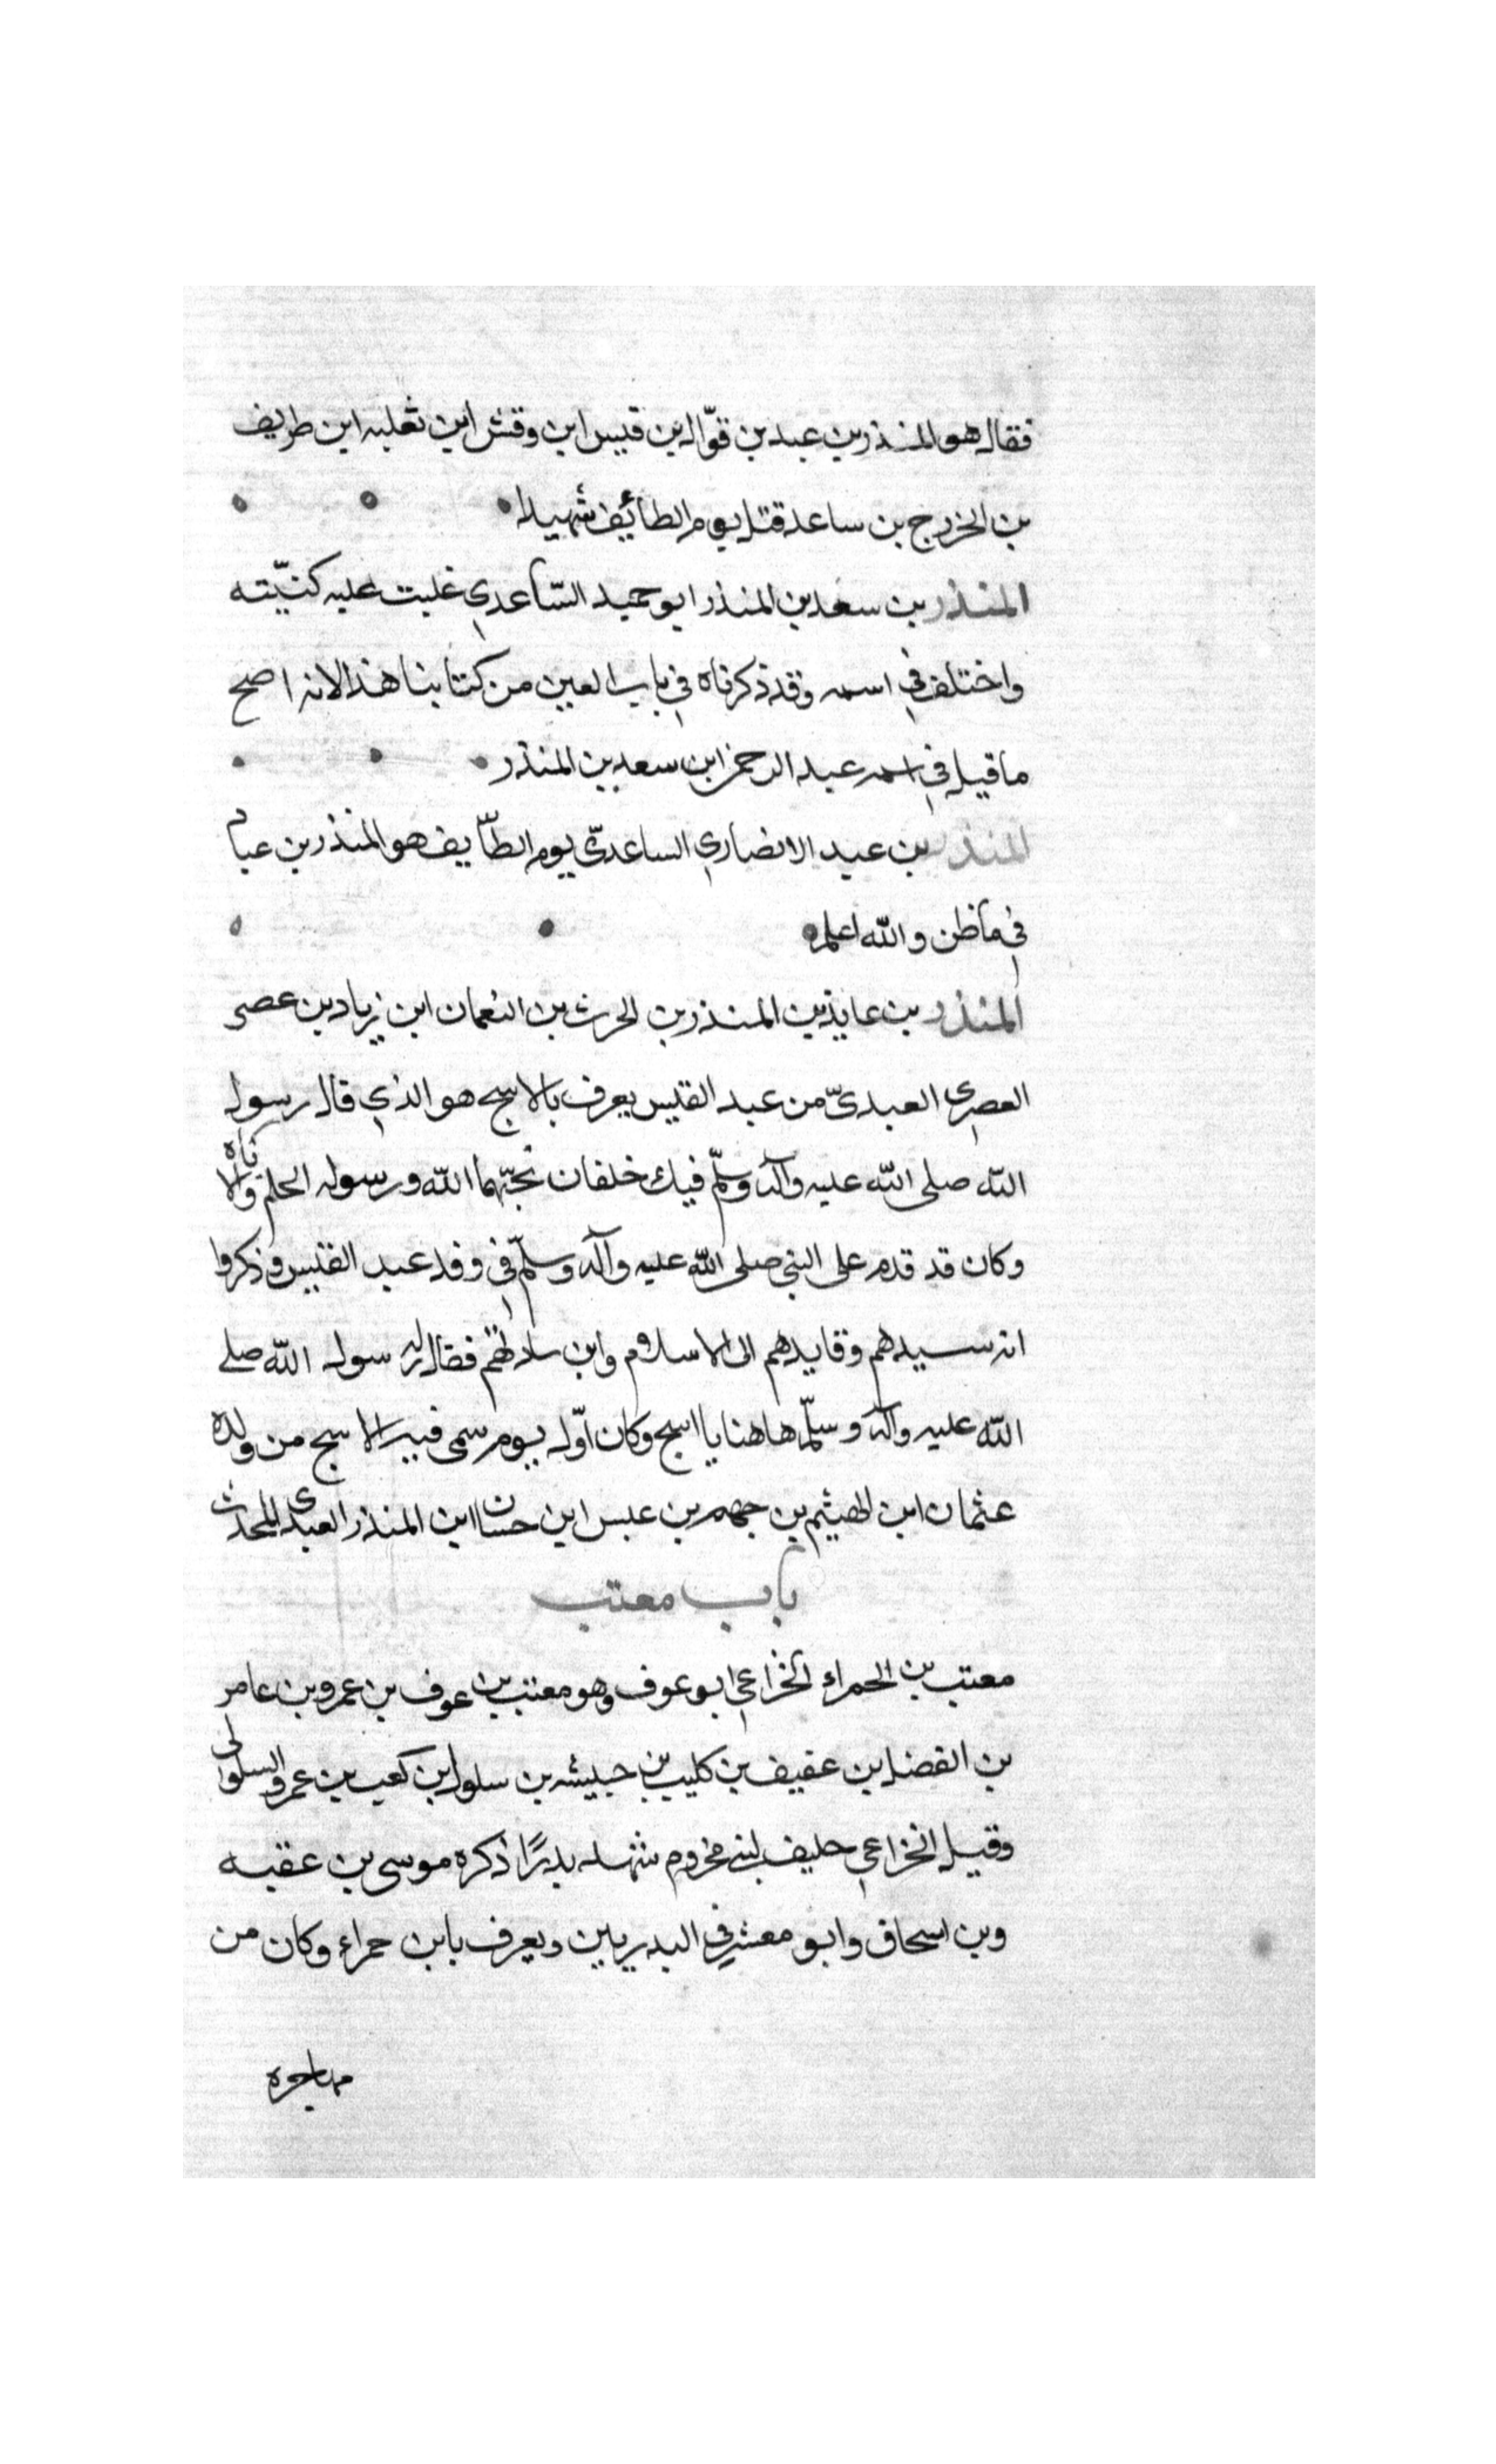 فقال هو المنذر بن عبد بن قوّال بن قيس ابن وقش ابن ثعلبه ابن طريف
بن الخزرج بن ساعد قتل يوم الطائف شهيدا
المنذر بن سعد بن المنذر ابو حميد السّاعدي غلبت عليه كنيّته
واختلف في اسمه وقد ذكرناه في باب العين من كتابنا هذا لانه اصح
ما قيل في اسمه عبد الرحمن ابن سعد بن المنذر
المنذر بن عبد الانصاري الساعديّ يوم الطّايف هو المنذر بن عباد
في ما ظن والله اعلم
المنذر بن عايذ بن المنذر بن الحرث بن النعمان ابن زياد بن عصر
العصري العبديّ من عبد القيس يعرف بالاشج هو الذي قال رسول
الله صلى الله عليه وآله وسلّم فيك خلقان يحبّهما الله ورسوله الحلم والاناه
وكان قد قدم على النبي صلى الله عليه وآله وسلّم في وفد عبد القيس وذكروا
انه سيدهم وقايدهم الى الاسلام وابن سادتهم فقال له رسول الله صلى
الله عليه وآله وسلّم هاهنا يا اشج وكان اوّل يوم سمى فيه الاشج من ولده
عثمان ابن الهيثم بن جهم بن عبس ابن حسان ابن المنذر العبدى المحدث
باب معتب
معتب بن الحمراء الخزاعي ابو عوف وهو معتب بن عوف بن عمرو بن عامر
بن الفضل بن عفيف بن كليب بن حبيشه بن سلول بن كعب بن عمرو السلولى
وقيل الخزاعي حليف لبني مخزوم شهد بدرًا ذكره موسى بن عقبه
وبن اسحاق وابو معشر في البدريين ويعرف بابن حمراء وكان من
مهاجره